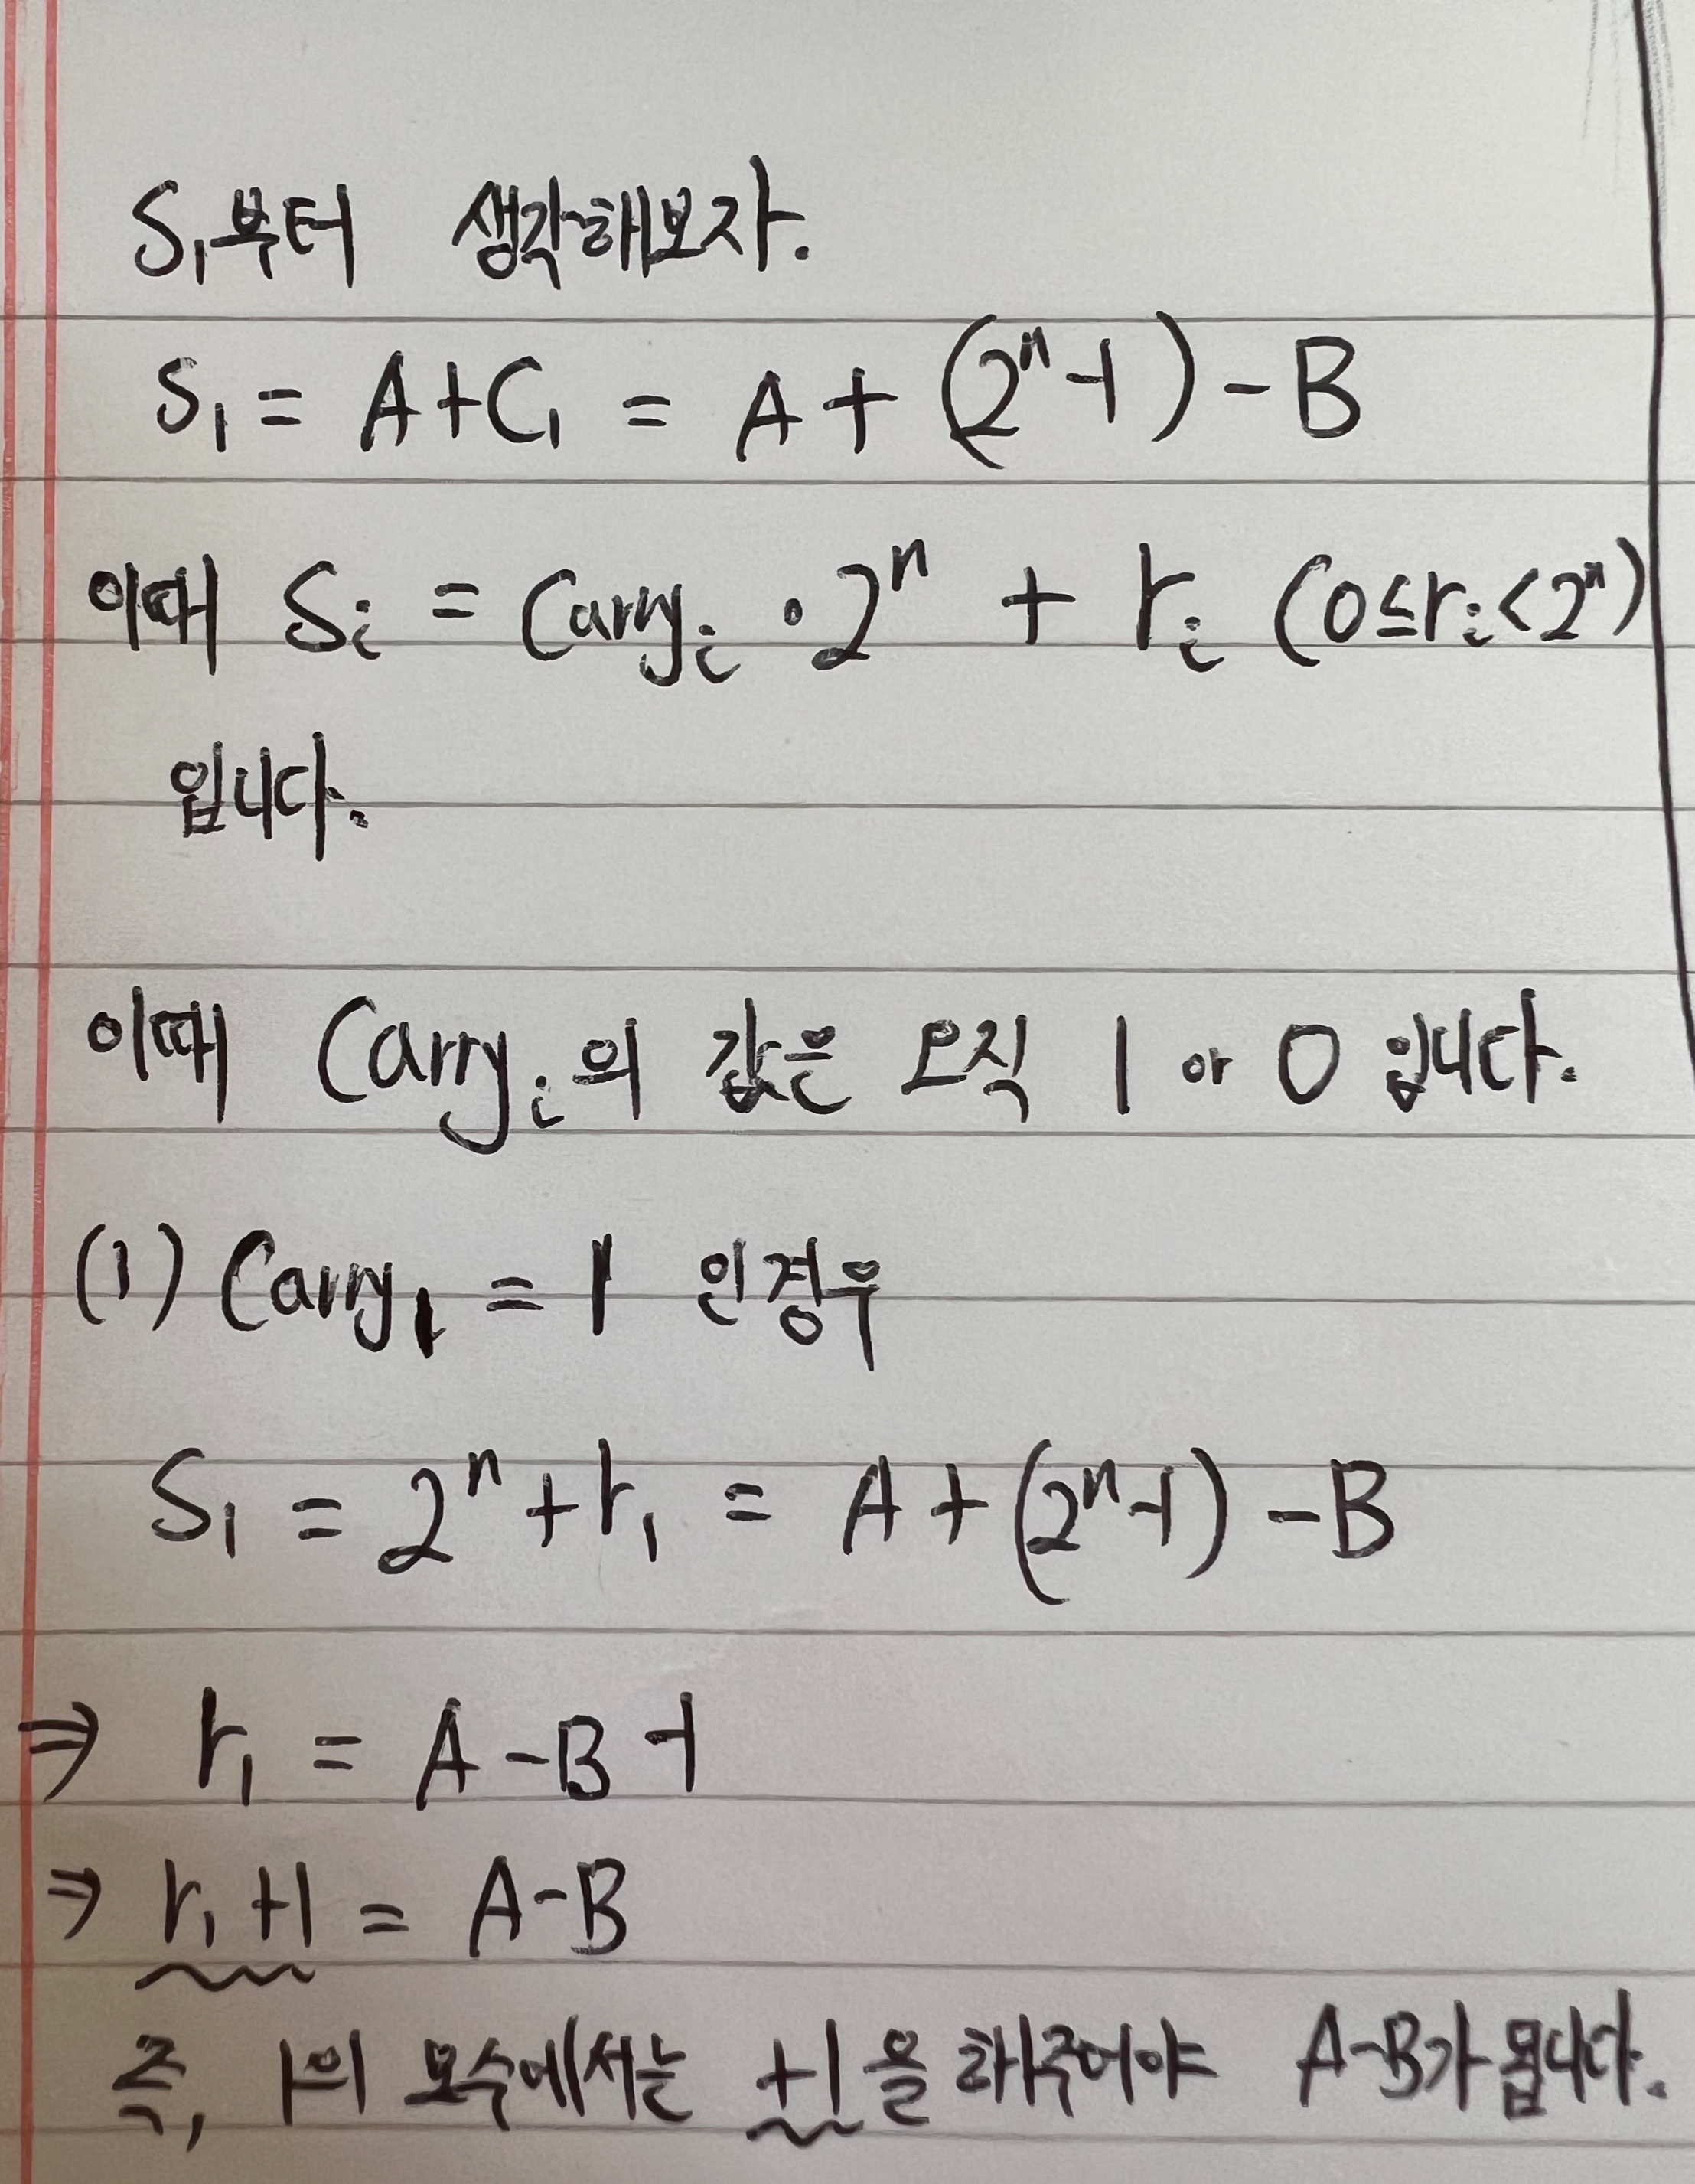 S₁부터 생각해보자.
S₁ = A+C₁ = A + (2ⁿ-1) - B
이때 Sᵢ = Carryᵢ · 2ⁿ + rᵢ (0≤rᵢ<2ⁿ)
입니다.
이때 Carryᵢ의 값은 오직 1 or 0 입니다.
(1) Carry₁ = 1 인경우
S₁ = 2ⁿ + r₁ = A + (2ⁿ-1) - B
⇒ r₁ = A - B -1
⇒ r₁ +1 = A - B
즉, 1의 보수에서는 +1을 해주어야 A-B가 됩니다.